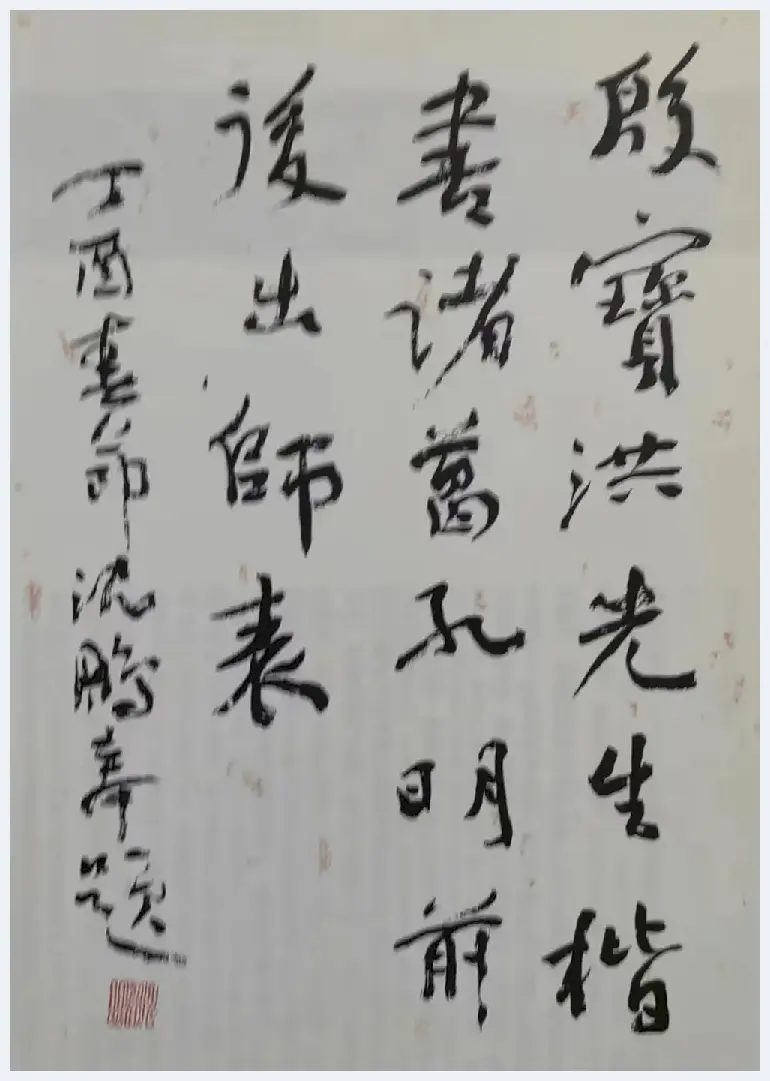 殷寶洪先生楷
書諸葛孔明前
後出師表
丁酉春節沈鵬奉題